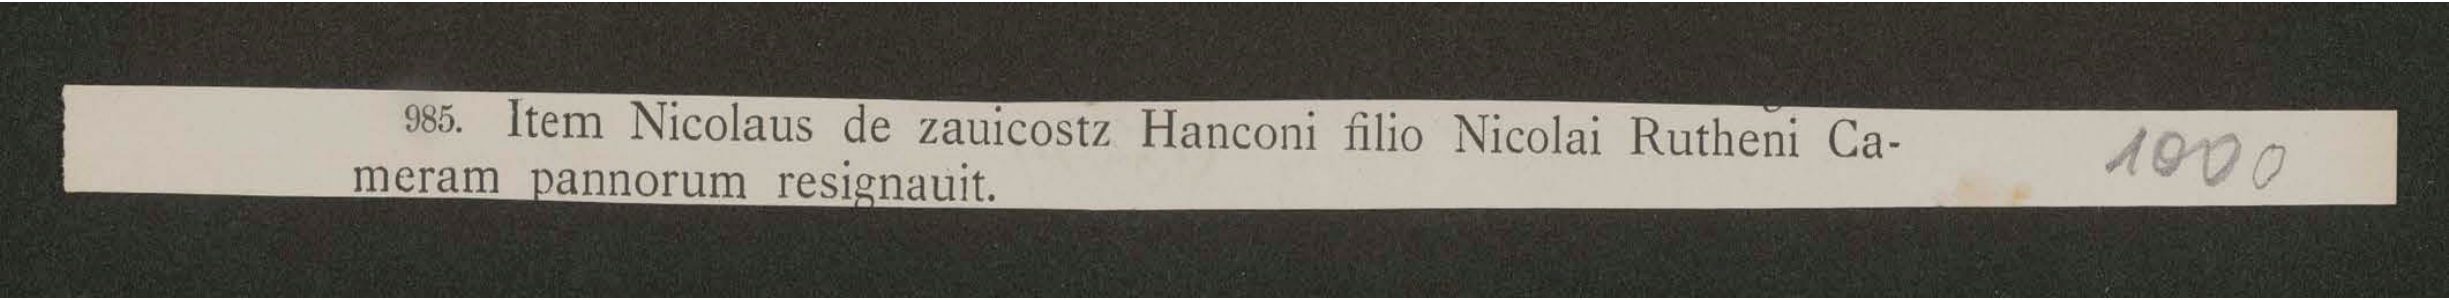 985. Item Nicolaus de zauicostz Hanconi filio Nicolai Rutheni Ca-
meram pannorum resignauit.
1000